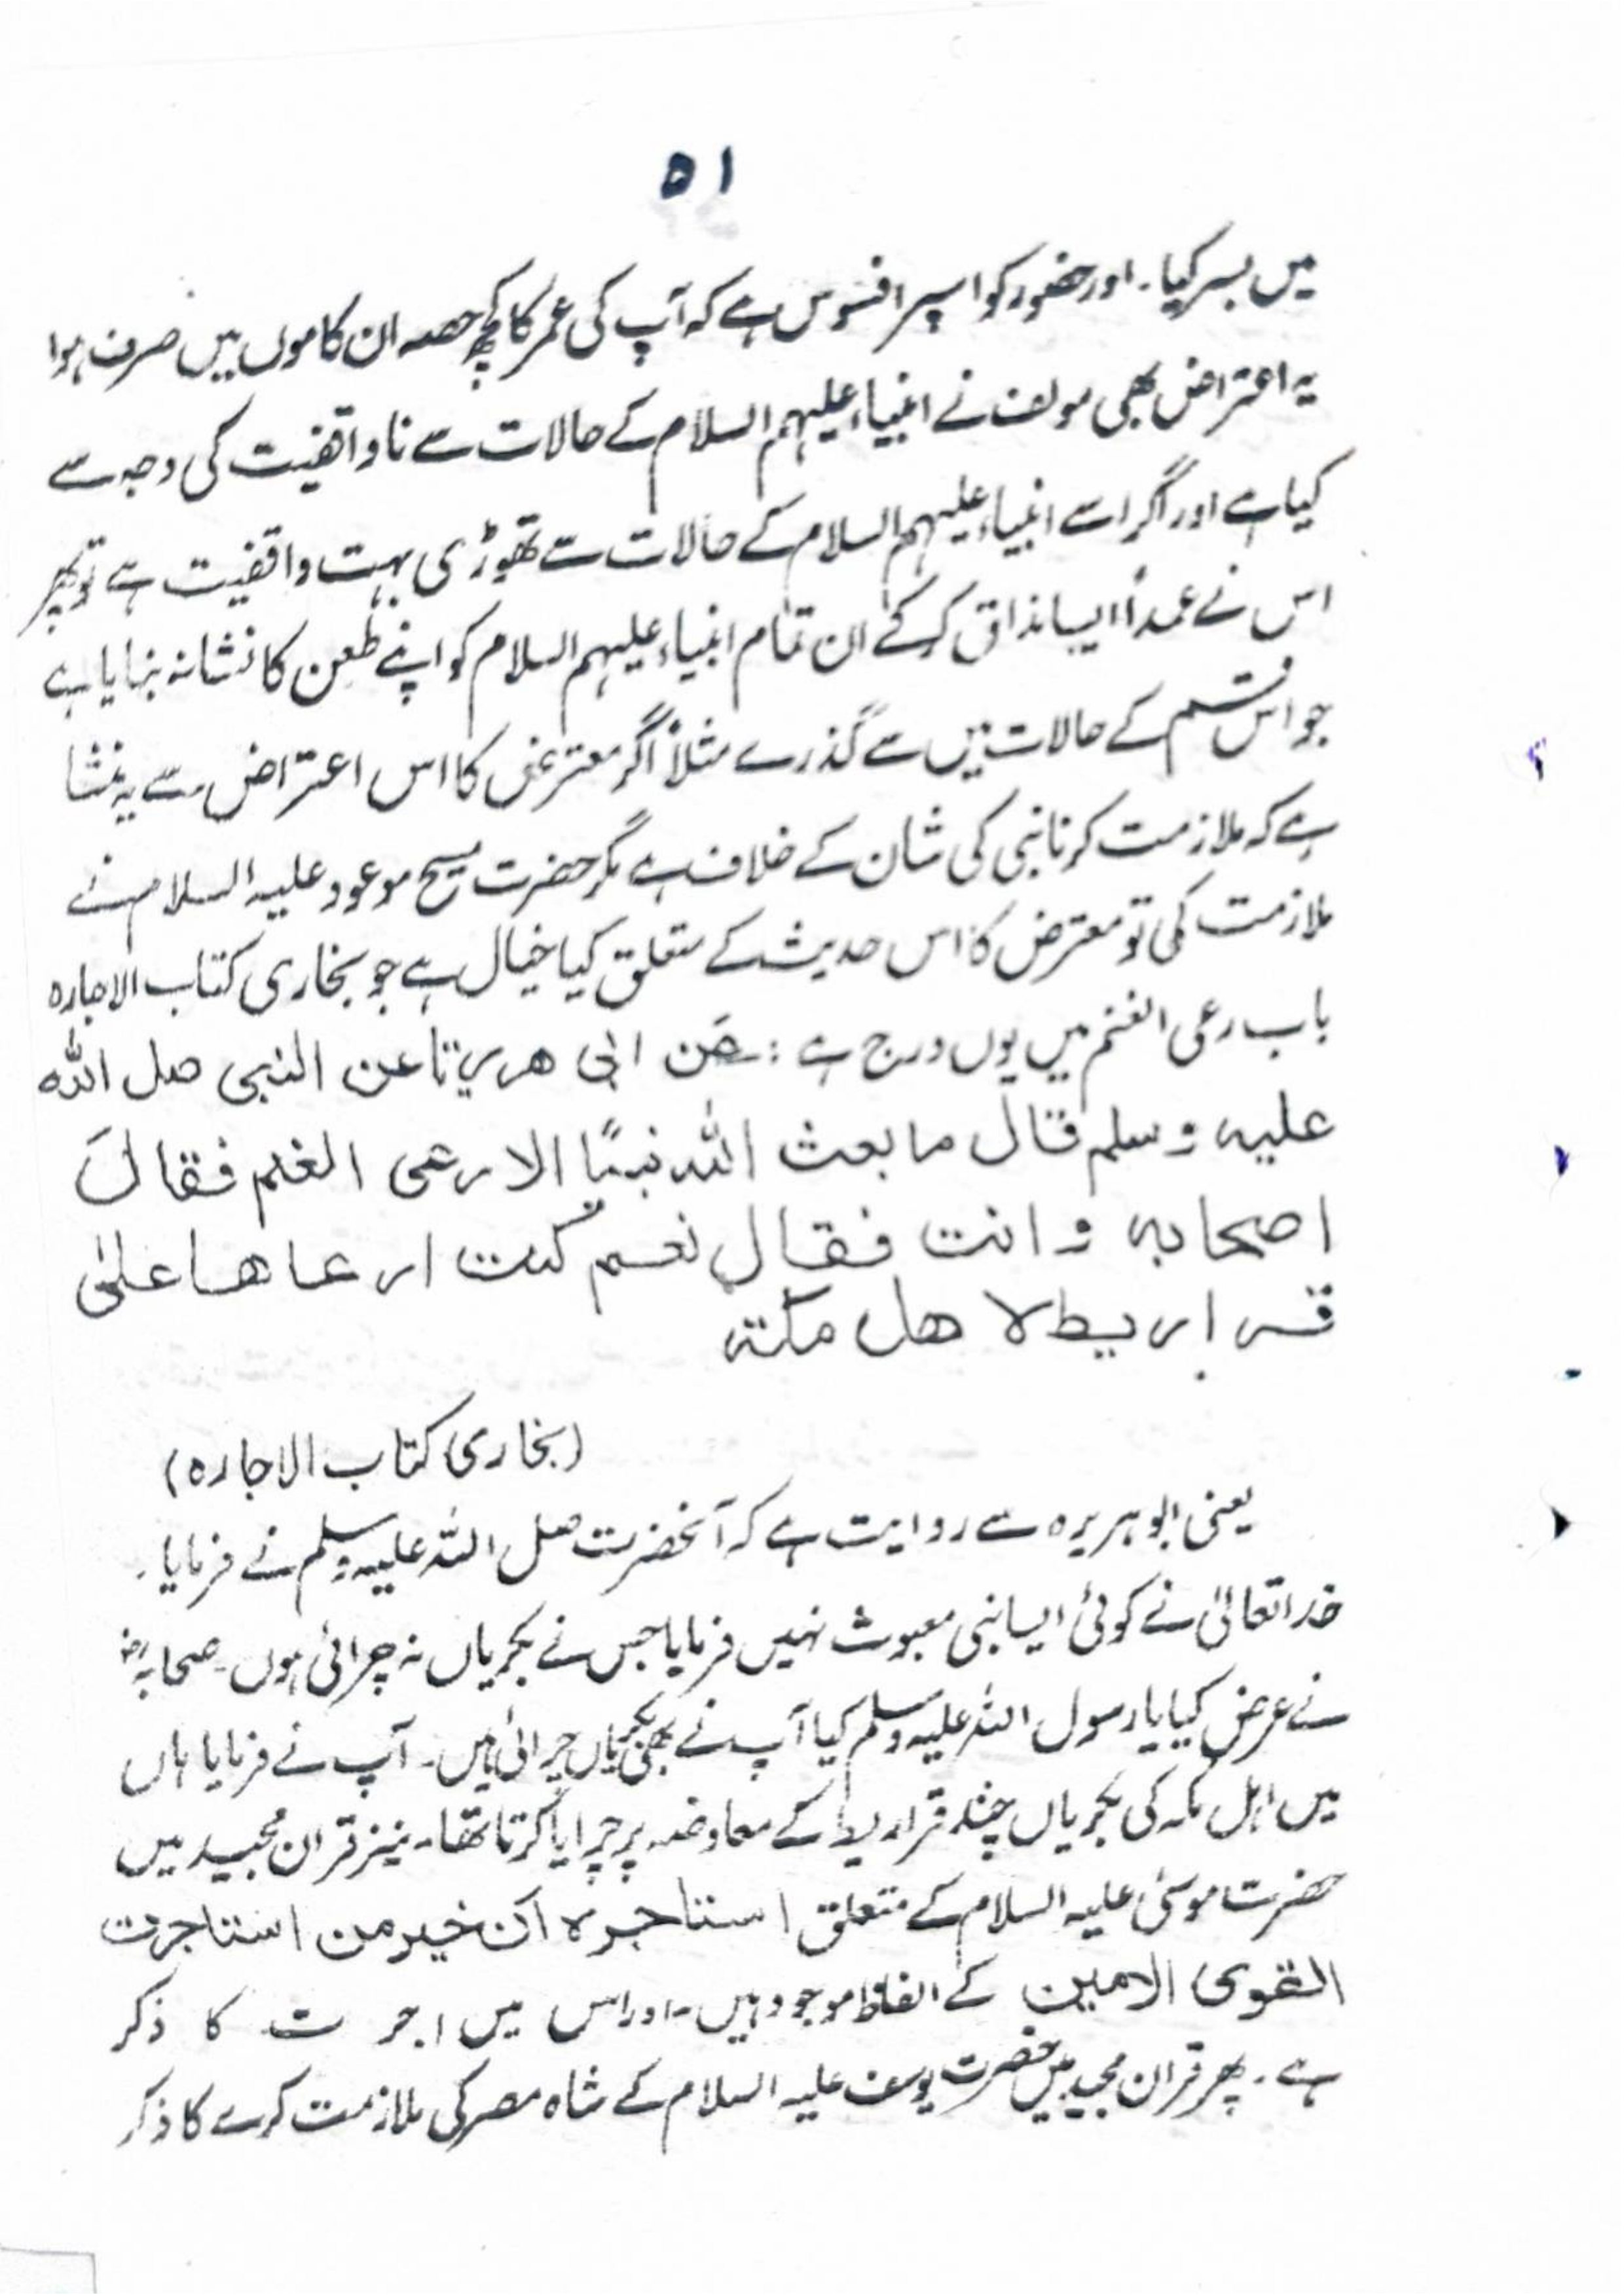 ۵۱
میں بسر کیا۔ اور حضور کو اسپر افسوس ہے کہ آپ کی عمر کا کچھ حصہ ان کاموں میں صرف ہوا
یہ اعتراض بھی مولف نے انبیاء علیہم السلام کے حالات سے ناواقفیت کی وجہ سے
کیا ہے اور اگر اسے انبیاء علیہم السلام کے حالات سے تھوڑی بہت واقفیت ہے تو پھر
اس نے عمداً ایسا مذاق کر کے ان تمام انبیاء علیہم السلام کو اپنے طعن کا نشانہ بنایا ہے
جو اس قسم کے حالات میں سے گذرے مثلاً اگر معترض کا اس اعتراض سے یہ منشا
ہے کہ ملازمت کرنا نبی کی شان کے خلاف ہے مگر حضرت مسیح موعود علیہ السلام نے
ملازمت کی تو معترض کا اس حدیث کے متعلق کیا خیال ہے جو بخاری کتاب الاجارہ
باب رعی الغنم میں یوں درج ہے :۔ عَن ابی ھریرتا عن النبی صل اللہ
علیہ وسلم قال ما بعث اللہ نبیًا الا رعی الغنم فقالَ
اصحابہ و انت فقال نعم کنت ارعاھا علیٰ
قراریط لا ھل مکتہ
(بخاری کتاب الاجارہ)
یعنی ابوہریرہ سے روایت ہے کہ آنحضرت صل اللہ علیہ وسلم نے فرمایا۔
خدا تعالیٰ نے کوئی ایسا نبی مبعوث نہیں فرمایا جس نے بکریاں نہ چرائی ہوں۔ صحابہؓ
نے عرض کیا یا رسول اللہ علیہ وسلم کیا آپ نے بھی بکریاں چرائی ہیں۔ آپ نے فرمایا ہاں
میں اہل مکہ کی بکریاں چند قراریط کے معاوضہ پر چرایا کرتا تھا۔ نیز قران مجید میں
حضرت موسیٰ علیہ السلام کے متعلق استاجرہ ان خیر من استاجرت
القوی الامین کے الفاظ موجود ہیں۔ اور اس میں اجرت کا ذکر
ہے۔ پھر قران مجید میں حضرت یوسف علیہ السلام کے شاہ مصر کی ملازمت کرے کا ذکر